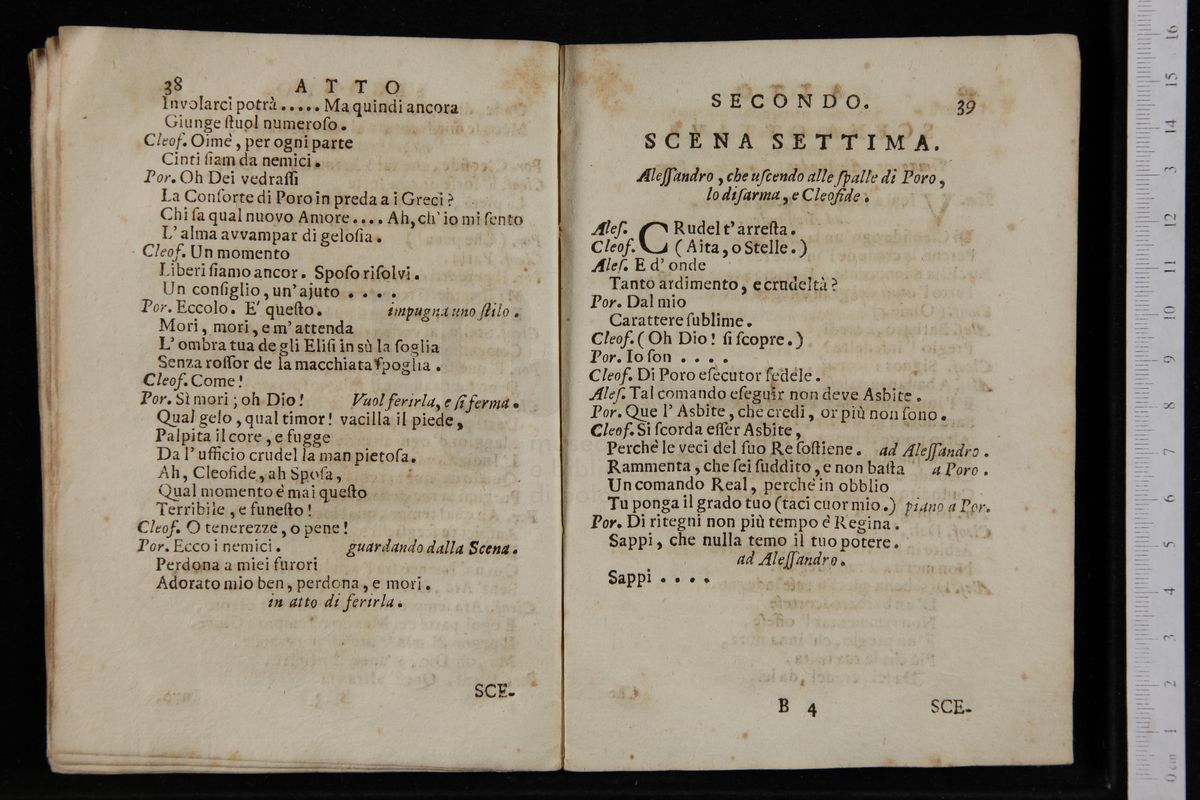 38 ATTO
Involarci potrà ..... Ma quindi ancora
Giunge ſtuol numeroſo.
Cleof. Oimè, per ogni parte
Cinti ſiam da nemici.
Por. Oh Dei vedraſſi
La Conſorte di Poro in preda a i Greci?
Chi ſa qual nuovo Amore.... Ah, ch' io mi ſento
L' alma avvampar di geloſia.
Cleof. Un momento
Liberi ſiamo ancor. Spoſo riſolvi.
Un conſiglio, un' ajuto ....
Por. Eccolo. E' queſto. impugna uno ſtilo.
Mori, mori, e m' attenda
L' ombra tua de gli Eliſi in sù la ſoglia
Senza roſſor de la macchiata ſpoglia.
Cleof. Come!
Por. Sì mori; oh Dio! Vuol ferirla, e ſi ferma.
Qual gelo, qual timor! vacilla il piede,
Palpita il core, e fugge
Da l' ufficio crudel la man pietoſa.
Ah, Cleofide, ah Spoſa,
Qual momento è mai queſto
Terribile, e funeſto!
Cleof. O tenerezze, o pene!
Por. Ecco i nemici. guardando dalla Scena.
Perdona a miei furori
Adorato mio ben, perdona, e mori.
in atto di ferirla.
SCE-
SECONDO. 39
SCENA SETTIMA.
Aleſſandro, che uſcendo alle ſpalle di Poro,
lo diſarma, e Cleofide.
Aleſ. CRudel t' arreſta.
Cleof. (Aita, o Stelle.)
Aleſ. E d' onde
Tanto ardimento, e crudeltà?
Por. Dal mio
Carattere ſublime.
Cleof. (Oh Dio! ſi ſcopre.)
Por. Io ſon ....
Cleof. Di Poro eſecutor fedele.
Aleſ. Tal comando eſeguir non deve Asbite.
Por. Que l' Asbite, che credi, or più non ſono.
Cleof. Si ſcorda eſſer Asbite,
Perchè le veci del ſuo Re ſoſtiene. ad Aleſſandro.
Rammenta, che ſei ſuddito, e non baſta a Poro.
Un comando Real, perchè in obblio
Tu ponga il grado tuo (taci cuor mio.) piano a Por.
Por. Di ritegni non più tempo è Regina.
Sappi, che nulla temo il tuo potere.
ad Aleſſandro.
Sappi ....
B 4 SCE-